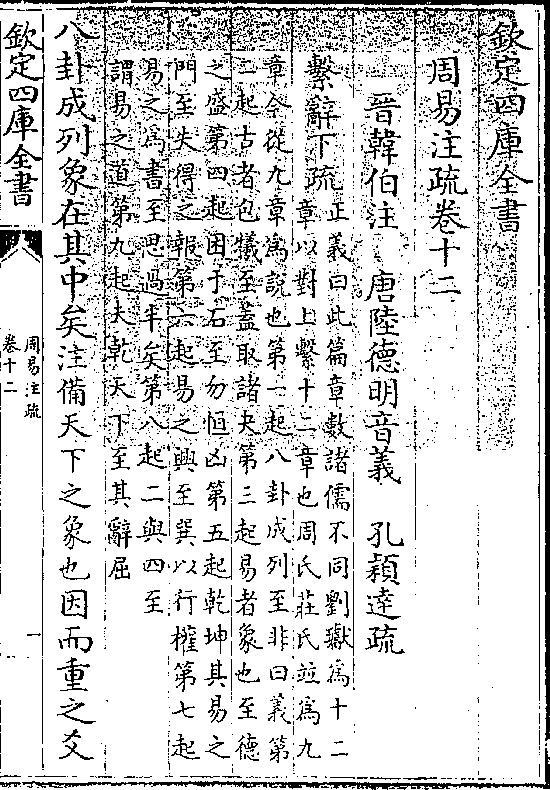 欽定四庫全書
周易注疏卷十二
晉韓伯注　唐陸德明音義　孔穎達疏
繫辭下疏
正義曰此篇章數諸儒不同劉瓛為十二
章以對上繫十二章也周氏莊氏竝為九
章今從九章為說也第一起八卦成列至非曰義第
二起古者包犧至蓋取諸夬第三起易者象也至德
之盛第四起困于石至勿恒凶第五起乾坤其易之
門至失得之報第六起易之興至巽以行權第七起
易之為書至思過半矣第八起二與四至
謂易之道第九起夫乾天下至其辭屈
八卦成列象在其中矣注備天下之象也因而重之爻
欽定四庫全書
周易注疏
卷十二
一